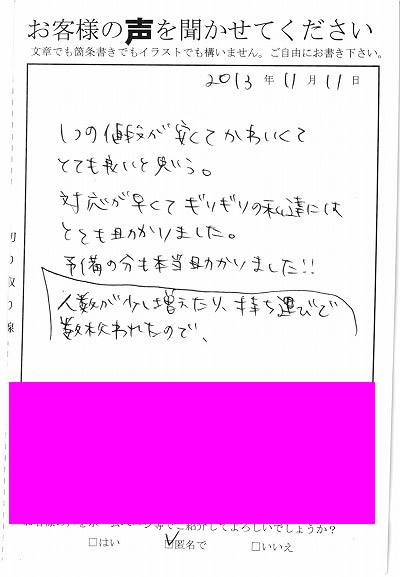 お客様の声を聞かせてください
文章でも箇条書きでもイラストでも構いません。ご自由にお書き下さい。
2013 年 11 月 11 日
1つの値段が安くてかわいくて
とても良いと思う。
対応が早くてギリギリの私達には
とても助かりました。
予備の分も本当助かりました!!
人数が少し増えたり、持ち運びで
数枚われたので、
切り取り線
お客様の声をホームページ等でご紹介してよろしいでしょうか？
□はい ☑匿名で □いいえ